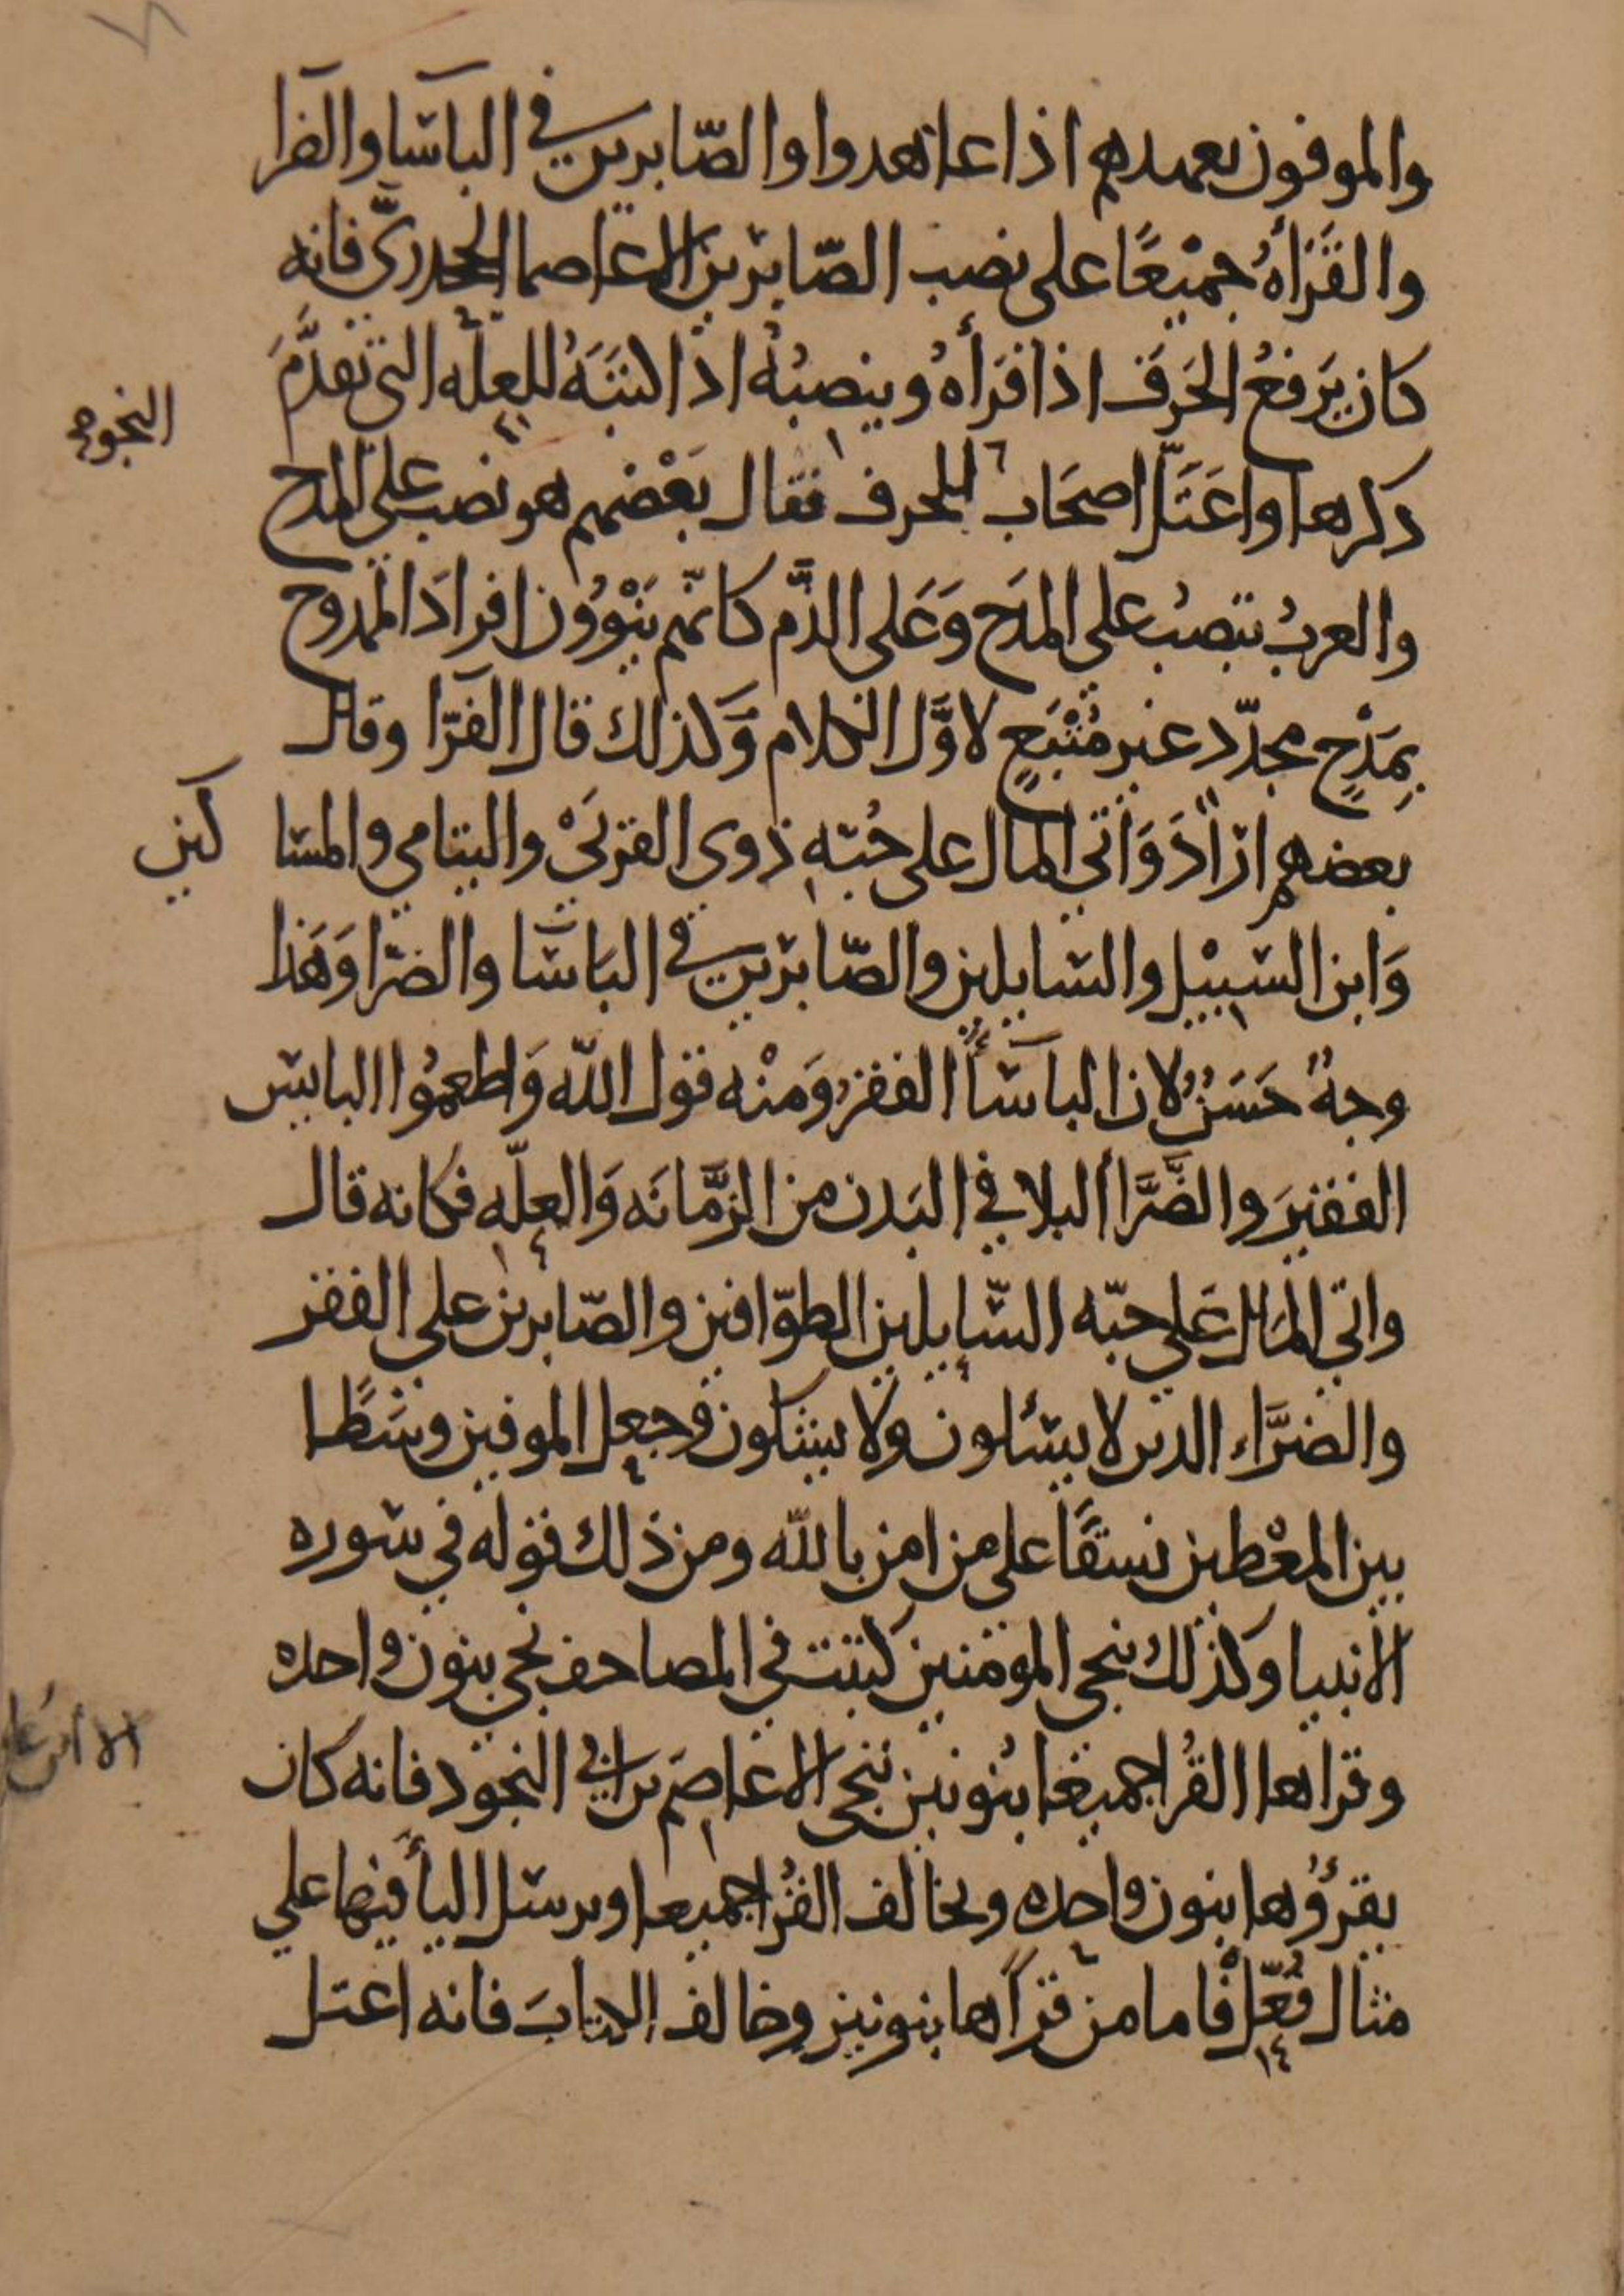 والموفون بعهدهم اذا عاهدوا والصّابرين في الباسا والضرا
والقَرَأهُ جميْعًا على نصب الصّابرين الا عاصما الجحدريّ فانه
كان يَرفعُ الحَرفَ اذا قرَأهُ وينصبُهُ اذا كتبَهُ للعلّه التى تقدَّمَ
النحو
ذكرها واعتَلَّ اصحَاب الحرف فقال بَعْضهم هو نصب على المدح
والعربُ تنصِبُ على المدَح وَعَلى الذَّم كانّهم يَنْوُوُن افرادَ الممدوح
بِمَدْحٍ مجدّد غير مُتْبَعٍ لاوَّل الكلام وَكذلك قال الفرّا وقال
بعضهم ارَادَ وَآتي المال على حُبّهِ ذوى القربَىْ واليتامي والمسا
كين
وَابن السّبيْل والسّايلين والصّابرين في البَاسَا والضرّا وَهَذا
وجهٌ حَسَنٌ لان الباسَآ الفقرُ وَمنْه قول اللّه وَاطعمُوا البايس
الفقيرَ والضَّرَّآ البلا في البَدن من الزَّمَانَه وَالعلّه فكانه قال
واتي المال عَلي حبّه السّايلين الطوّافين والصّابرين علي الفقر
والضرَّاء الذين لا يسئلون ولا يشكون وجعل الموفين وسَطًا
بين المعْطين نسقًا على من امن بالله ومن ذلك قوله في سوره
الانبيا وكذلك ننجى المومنين كتبت في المصاحف نجى بنون واحده
وقراها القُرا جميعا بنُونين ننجى الا عاصم بن ابي النجود فانه كان
يقرؤُها بنون واحده ويخالف القُرا جميعا ويرسل اليأ فيها علي
مثال فُعّلْ فاما من قرأها بنونين وخالف الكتابَ فانه اعتل